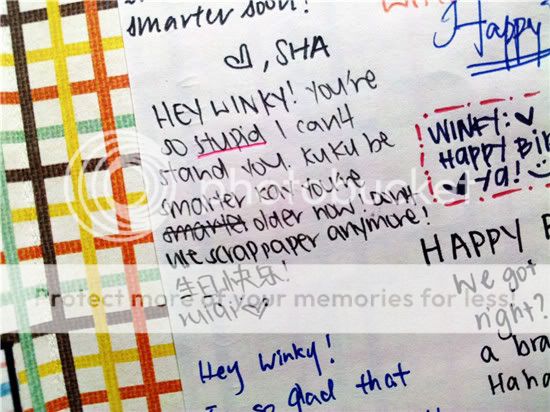 smarter soon!
♡, SHA
HEY WINKY! you're
so stupid I can't
stand you. KUKU be
smarter cos you're
smarter older now! can't
use scrap paper anymore!
生日快乐!
Happy
WINKY: ♥
Happy Bir
ya!
HAPPY B
We got
right?
a bra
Haha
Hey Winky!
so glad that
photobucket
Protect more of your memories for less!